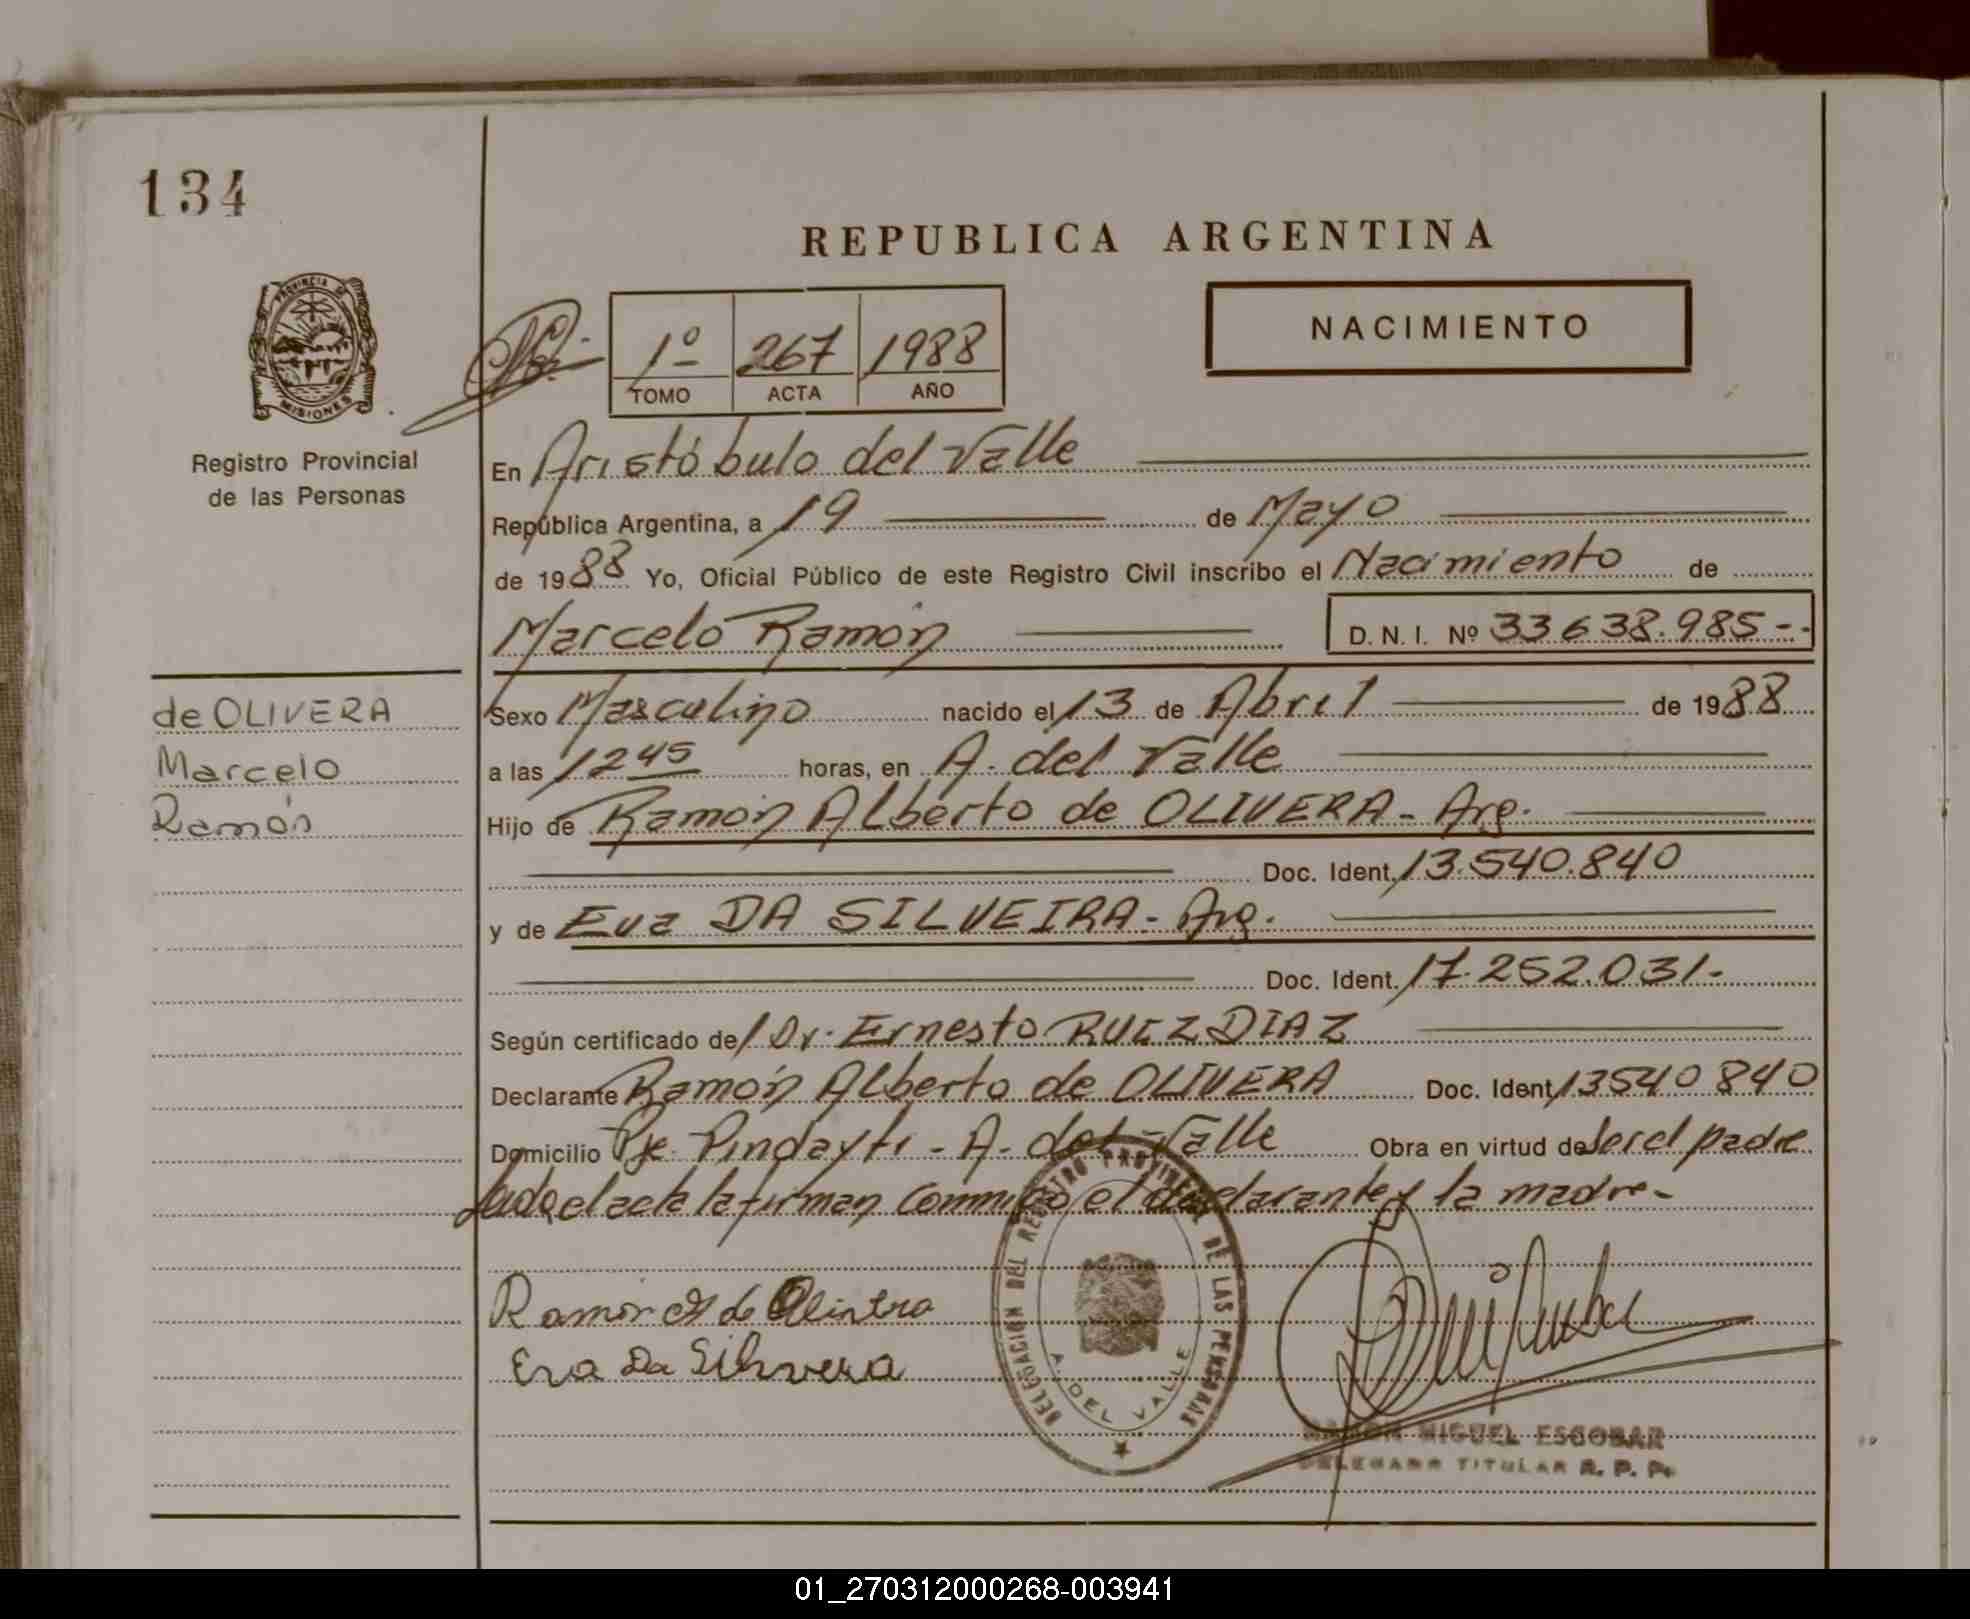 134
REPUBLICA ARGENTINA
PROVINCIA DE
MISIONES
Registro Provincial
de las Personas
1º 267 1988
TOMO ACTA AÑO
NACIMIENTO
En Aristóbulo del Valle
República Argentina, a 19 de Mayo
de 1988 Yo, Oficial Público de este Registro Civil inscribo el Nacimiento de
Marcelo Ramón D. N. I. Nº 33638.985--
de OLIVERA
Marcelo
Ramón
Sexo Masculino nacido el 13 de Abril de 1988
a las 1245 horas, en A. del Valle
Hijo de Ramón Alberto de OLIVERA - Arg.
Doc. Ident. 13.540.840
y de Eva DA SILVEIRA - Arg.
Doc. Ident. 17.252.031-
Según certificado de Dr. Ernesto RUIZ DIAZ
Declarante Ramón Alberto de OLIVERA Doc. Ident. 13540840
Domicilio Pje. Pindayti - A. del Valle Obra en virtud de ser el padre
el acta la firman conmigo el declarante y la madre-
Ramon de
Eva Da Silvera
DELEGACION DEL REGISTRO PROVINCIAL DE LAS PERSONAS
A. DEL VALLE
RAMON MIGUEL ESCOBAR
DELEGADO TITULAR R. P. P.
01_270312000268-003941